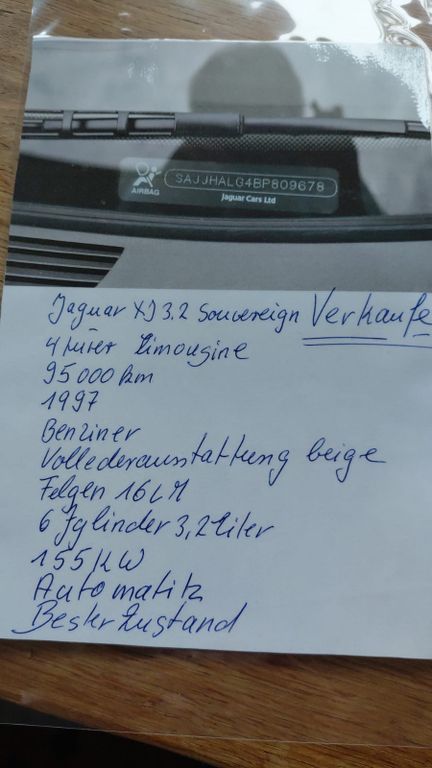 AIRBAG
SAJJHALG4BP809678
Jaguar Cars Ltd
Jaguar XJ 3.2 Souvereign Verkaufe
4 türer Limousine
95000 km
1997
Benziner
Vollederausstattung beige
Felgen 16 LM
6 Zylinder 3,2 Liter
155 KW
Automatik
Bester Zustand